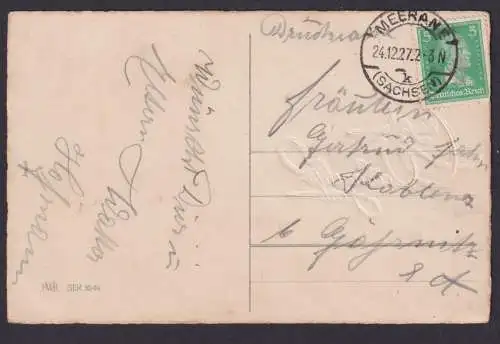 Drucksache
MEERANE
24.12.27.2-3N
k
(SACHSEN)
5 5
Deutsches Reich
Fräulein
Gertrud Jahn
b Gößnitz
S A
Wünscht Dir u.
Eltern
Walter
Hofmann
SER